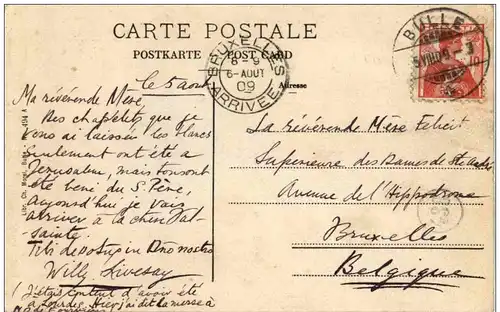 CARTE POSTALE
POSTKARTE POST CARD
Adresse
BULLE
5 VIII 09
10
BRUXELLES
8-9
6-AOUT
09
ARRIVEE
Le 5 aout
Ma révérende Mère
Des chapelets que je
vous ai laissés les blancs
seulement ont été a
Jerusalem, mais tous ont
été beni du S. Père,
aujourd'hui je vais
arriver a la
sainte.
in Dno nostro
Will. Livesay
(J'étais content d'avoir été
a Lourdes. Hier j'ai dit la messe à
La révérende Mère Felicit
Superieure des Dames de St André
Avenue de l'Hippodrome
Bruxelles
Belgique